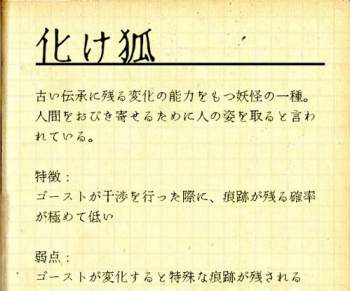 化け狐
古い伝承に残る変化の能力をもつ妖怪の一種。
人間をおびき寄せるために人の姿を取ると言わ
れている。
特徴：
ゴーストが干渉を行った際に、痕跡が残る確率
が極めて低い
弱点：
ゴーストが変化すると特殊な痕跡が残される